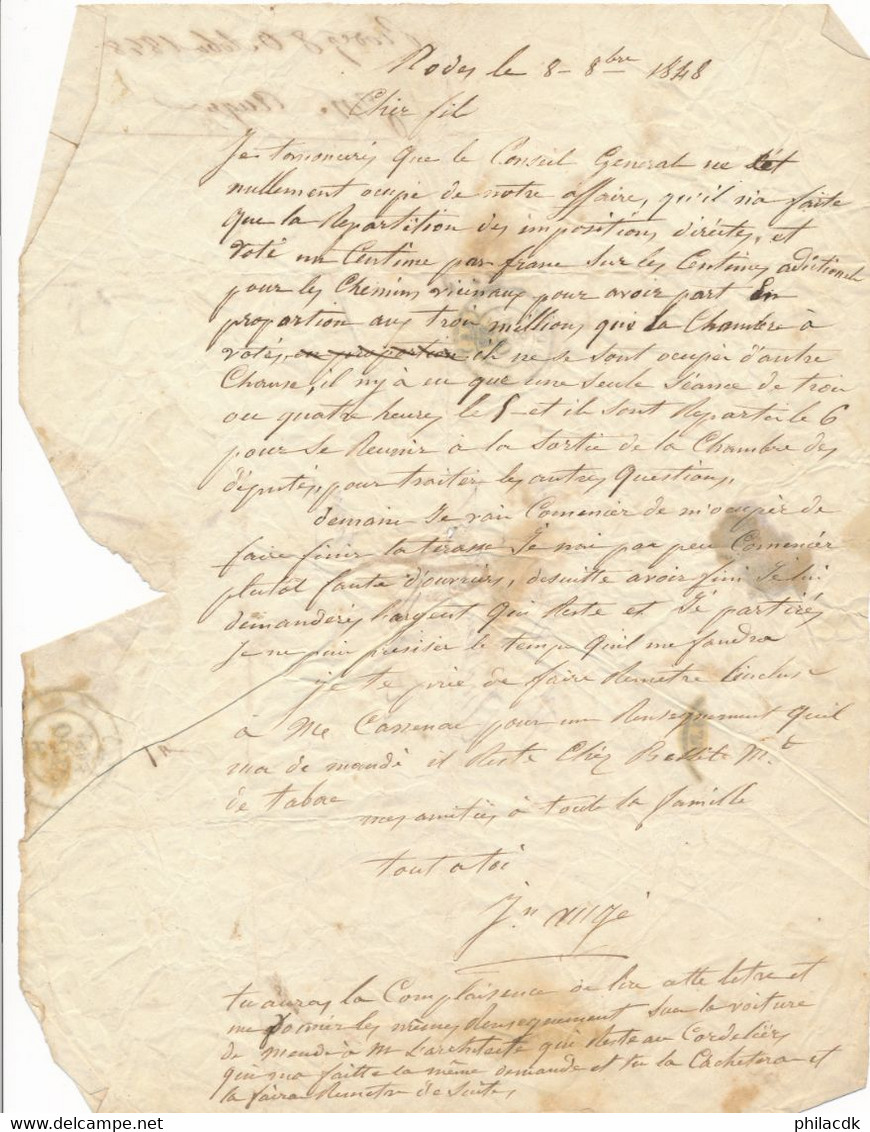 Rodes le 8 - 8bre 1848
Cher fil
Je que le Conseil General ne s'èt
nullement ocupé de notre affaire, qu'il n'a faite
que la Repartition des impositions dirèctes, et
voté un Centime par franc sur les Centimes aditionels
pour les Chemins vicinaux pour avoir part En
proportion aux troi millions que la Chambre à
votés, en proportion ils ne se sont ocupèr d'autre
Chause, il ny à eu que une seule Séance de troi
ou quatre heures le 5 - et ils sont Repartis le 6
pour se Reunir à la sortie de la Chambre des
députés, pour traiter les autres questions.
demain Je vai Comencer de m'ocupèr de
faire finir la terasse Je nai pas peu Comencér
plutot faute d'ouvriérs, desuitte avoir fini Je lui
demanderés l'argent qui Reste et Je partirés
Je ne puis presiser le temps qu'il me faudra
je te prie de faire Remetre l'incluse
à Me Cassenac pour un Rensegnement qu'il
ma de mandé il Reste Chéz Md
de tabac
mes amitiés à toute la famille
tout a toi
Jn
tu auras la Complaisence de lire cette letre et
me donner les mêmes Rensegnement sur la voiture
de mandé à M L'architecte qui Reste au Cordeliérs
qui ma faitte la même demande et tu la Cachetera et
la faira Remetre de suite,
Rodez 8 Octobre 1848